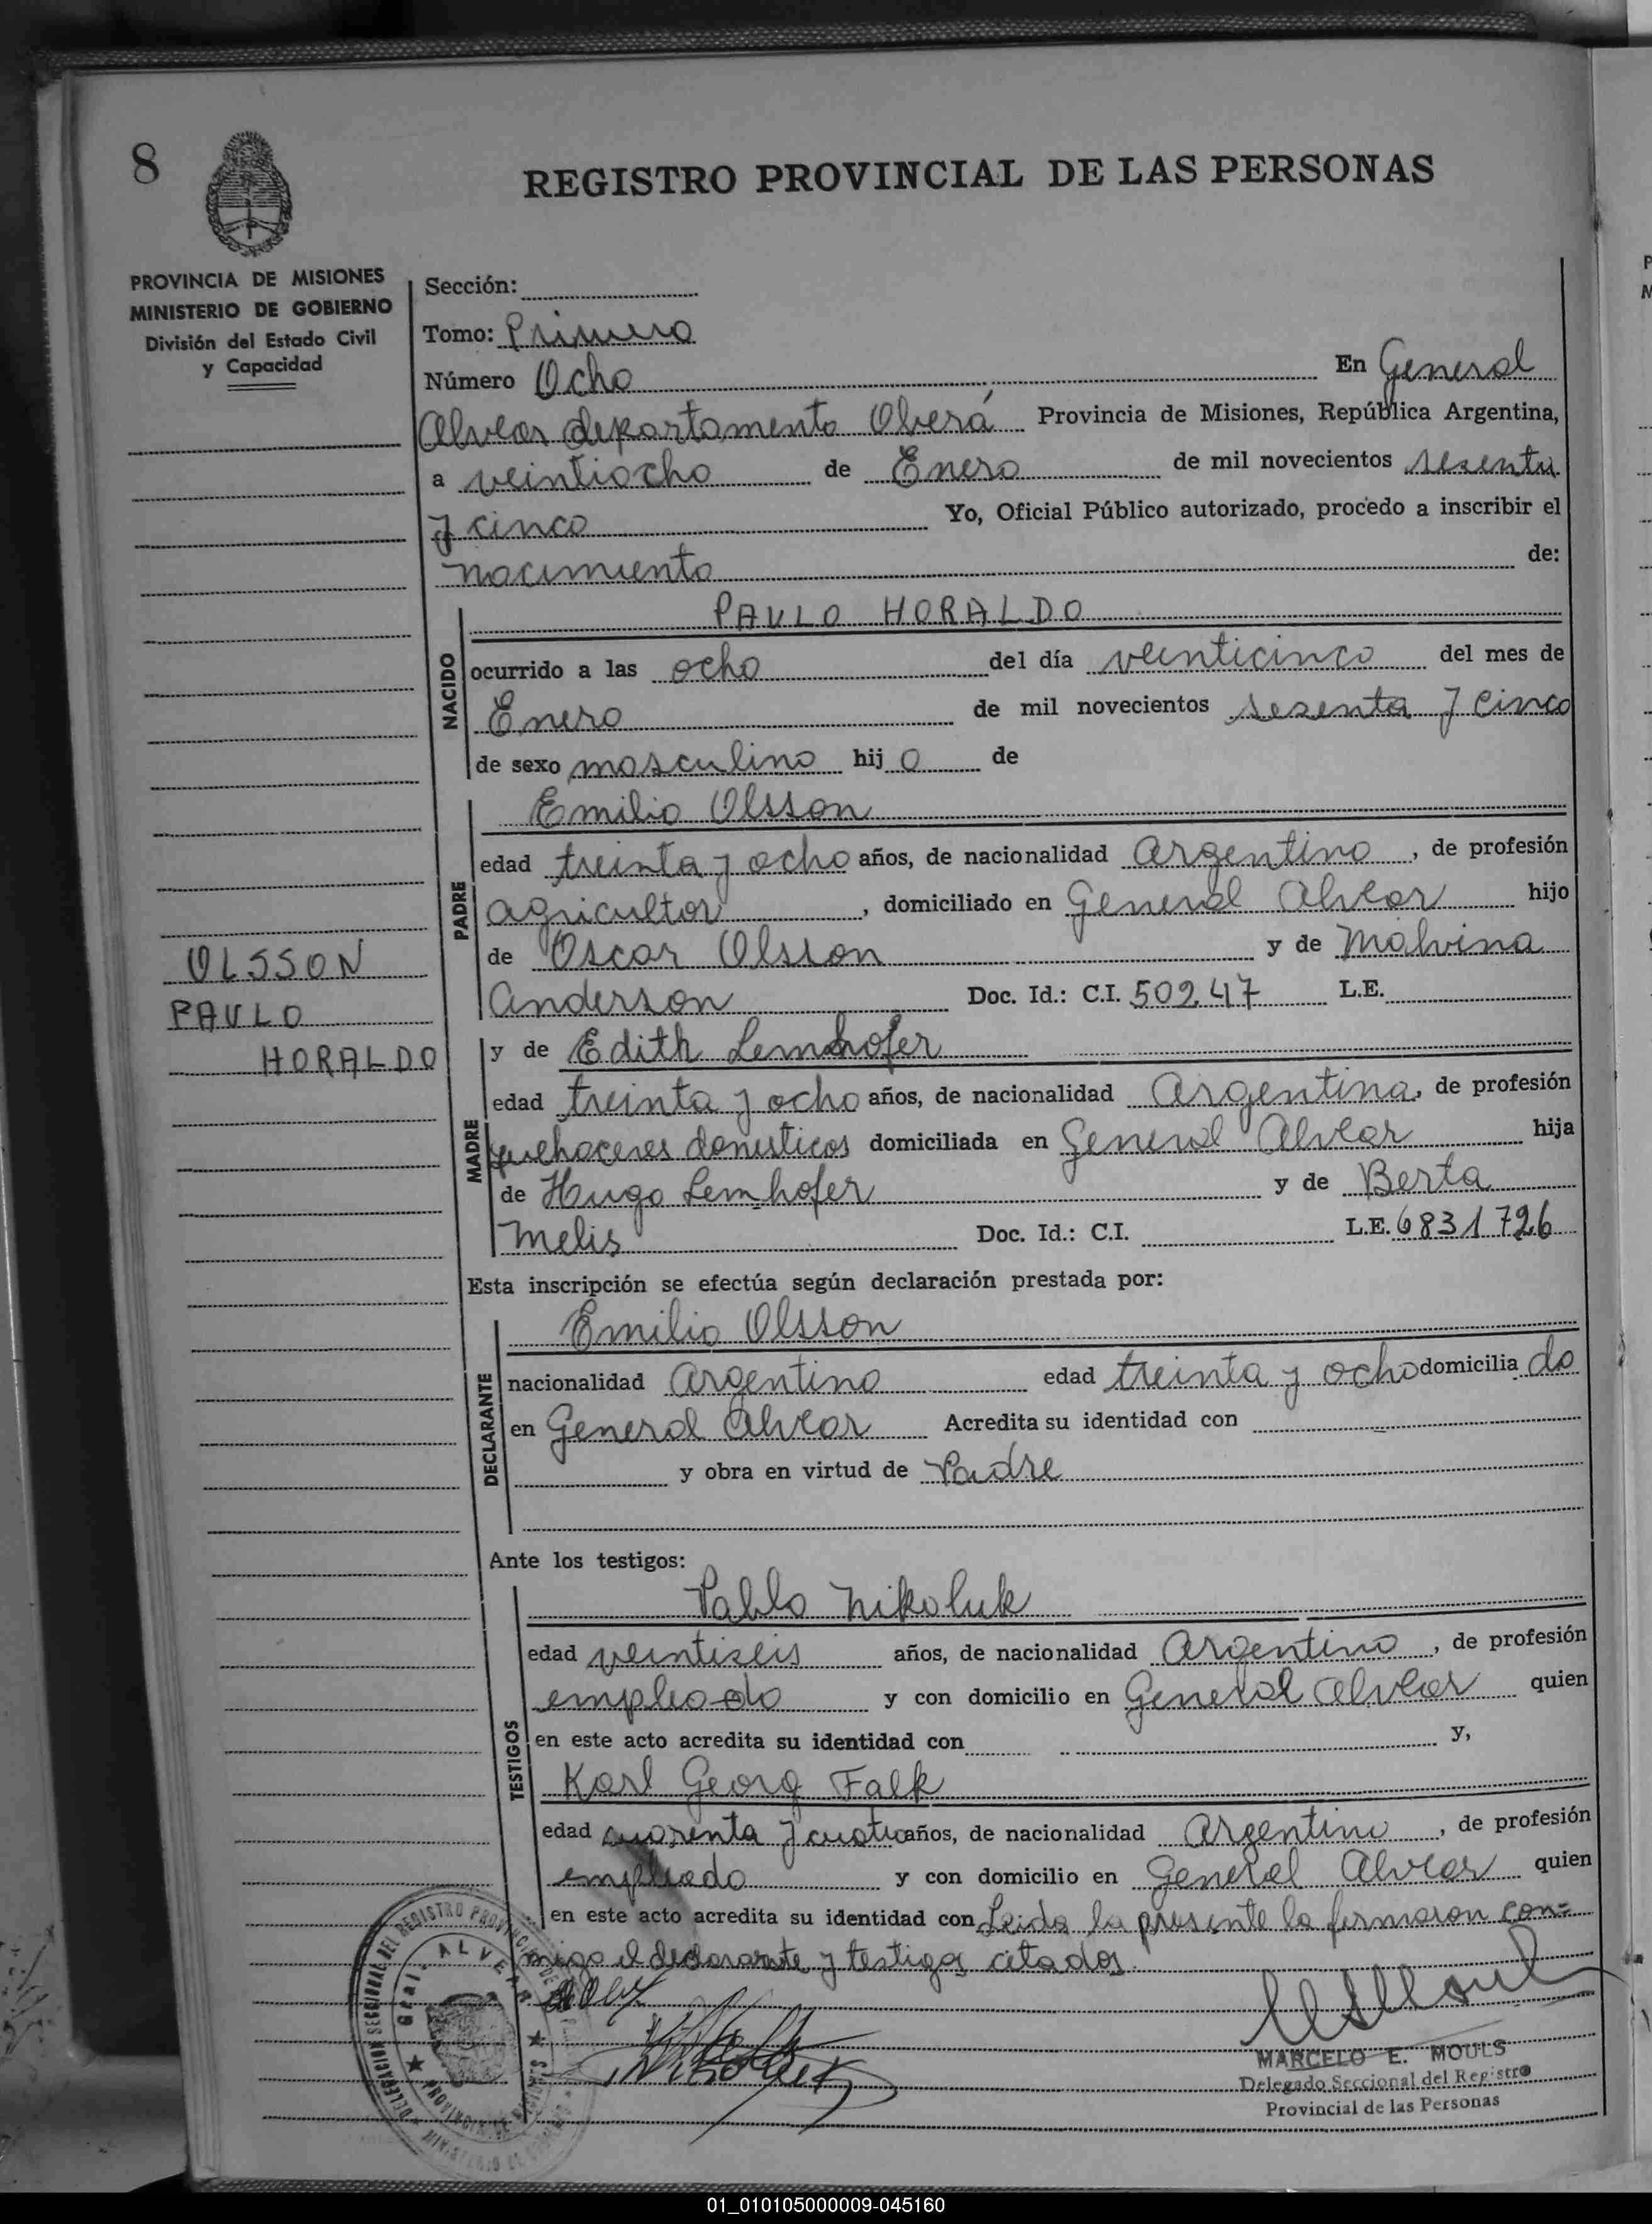 8
REGISTRO PROVINCIAL DE LAS PERSONAS
PROVINCIA DE MISIONES
MINISTERIO DE GOBIERNO
División del Estado Civil
y Capacidad
Sección:
Tomo: Primero
Número Ocho En General
Alvear departamento Oberá Provincia de Misiones, República Argentina,
a veintiocho de Enero de mil novecientos sesenta
y cinco Yo, Oficial Público autorizado, procedo a inscribir el
nacimiento de:
PAULO HORALDO
NACIDO
ocurrido a las ocho del día veinticinco del mes de
Enero de mil novecientos sesenta y cinco
de sexo masculino hij o de
Emilio Olsson
PADRE
edad treinta y ocho años, de nacionalidad Argentino, de profesión
agricultor, domiciliado en General Alvear hijo
de Oscar Olsson y de Malvina
Anderson Doc. Id.: C.I. 50247 L.E.
OLSSON
PAULO
HORALDO
y de Edith Lemhofer
MADRE
edad treinta y ocho años, de nacionalidad Argentina, de profesión
quehaceres domesticos domiciliada en General Alvear hija
de Hugo Lemhofer y de Berta
Melis Doc. Id.: C.I. L.E. 6831726
Esta inscripción se efectúa según declaración prestada por:
Emilio Olsson
DECLARANTE
nacionalidad Argentino edad treinta y ocho domicilia do
en General Alvear Acredita su identidad con
y obra en virtud de Padre
Ante los testigos:
Pablo Nikoluk
TESTIGOS
edad veintiseis años, de nacionalidad Argentino, de profesión
empleado y con domicilio en General Alvear quien
en este acto acredita su identidad con y,
Karl Georg Falk
edad cuarenta y cuatro años, de nacionalidad Argentino, de profesión
empleado y con domicilio en General Alvear quien
en este acto acredita su identidad con Leida la presente la firmaron con=
migo el declarante y testigos citados.
MARCELO E. MOULS
Delegado Seccional del Registro
Provincial de las Personas
DELEGACION SECCIONAL DEL REGISTRO PROVINCIAL DE
Gral. ALVEAR
01_010105000009-045160